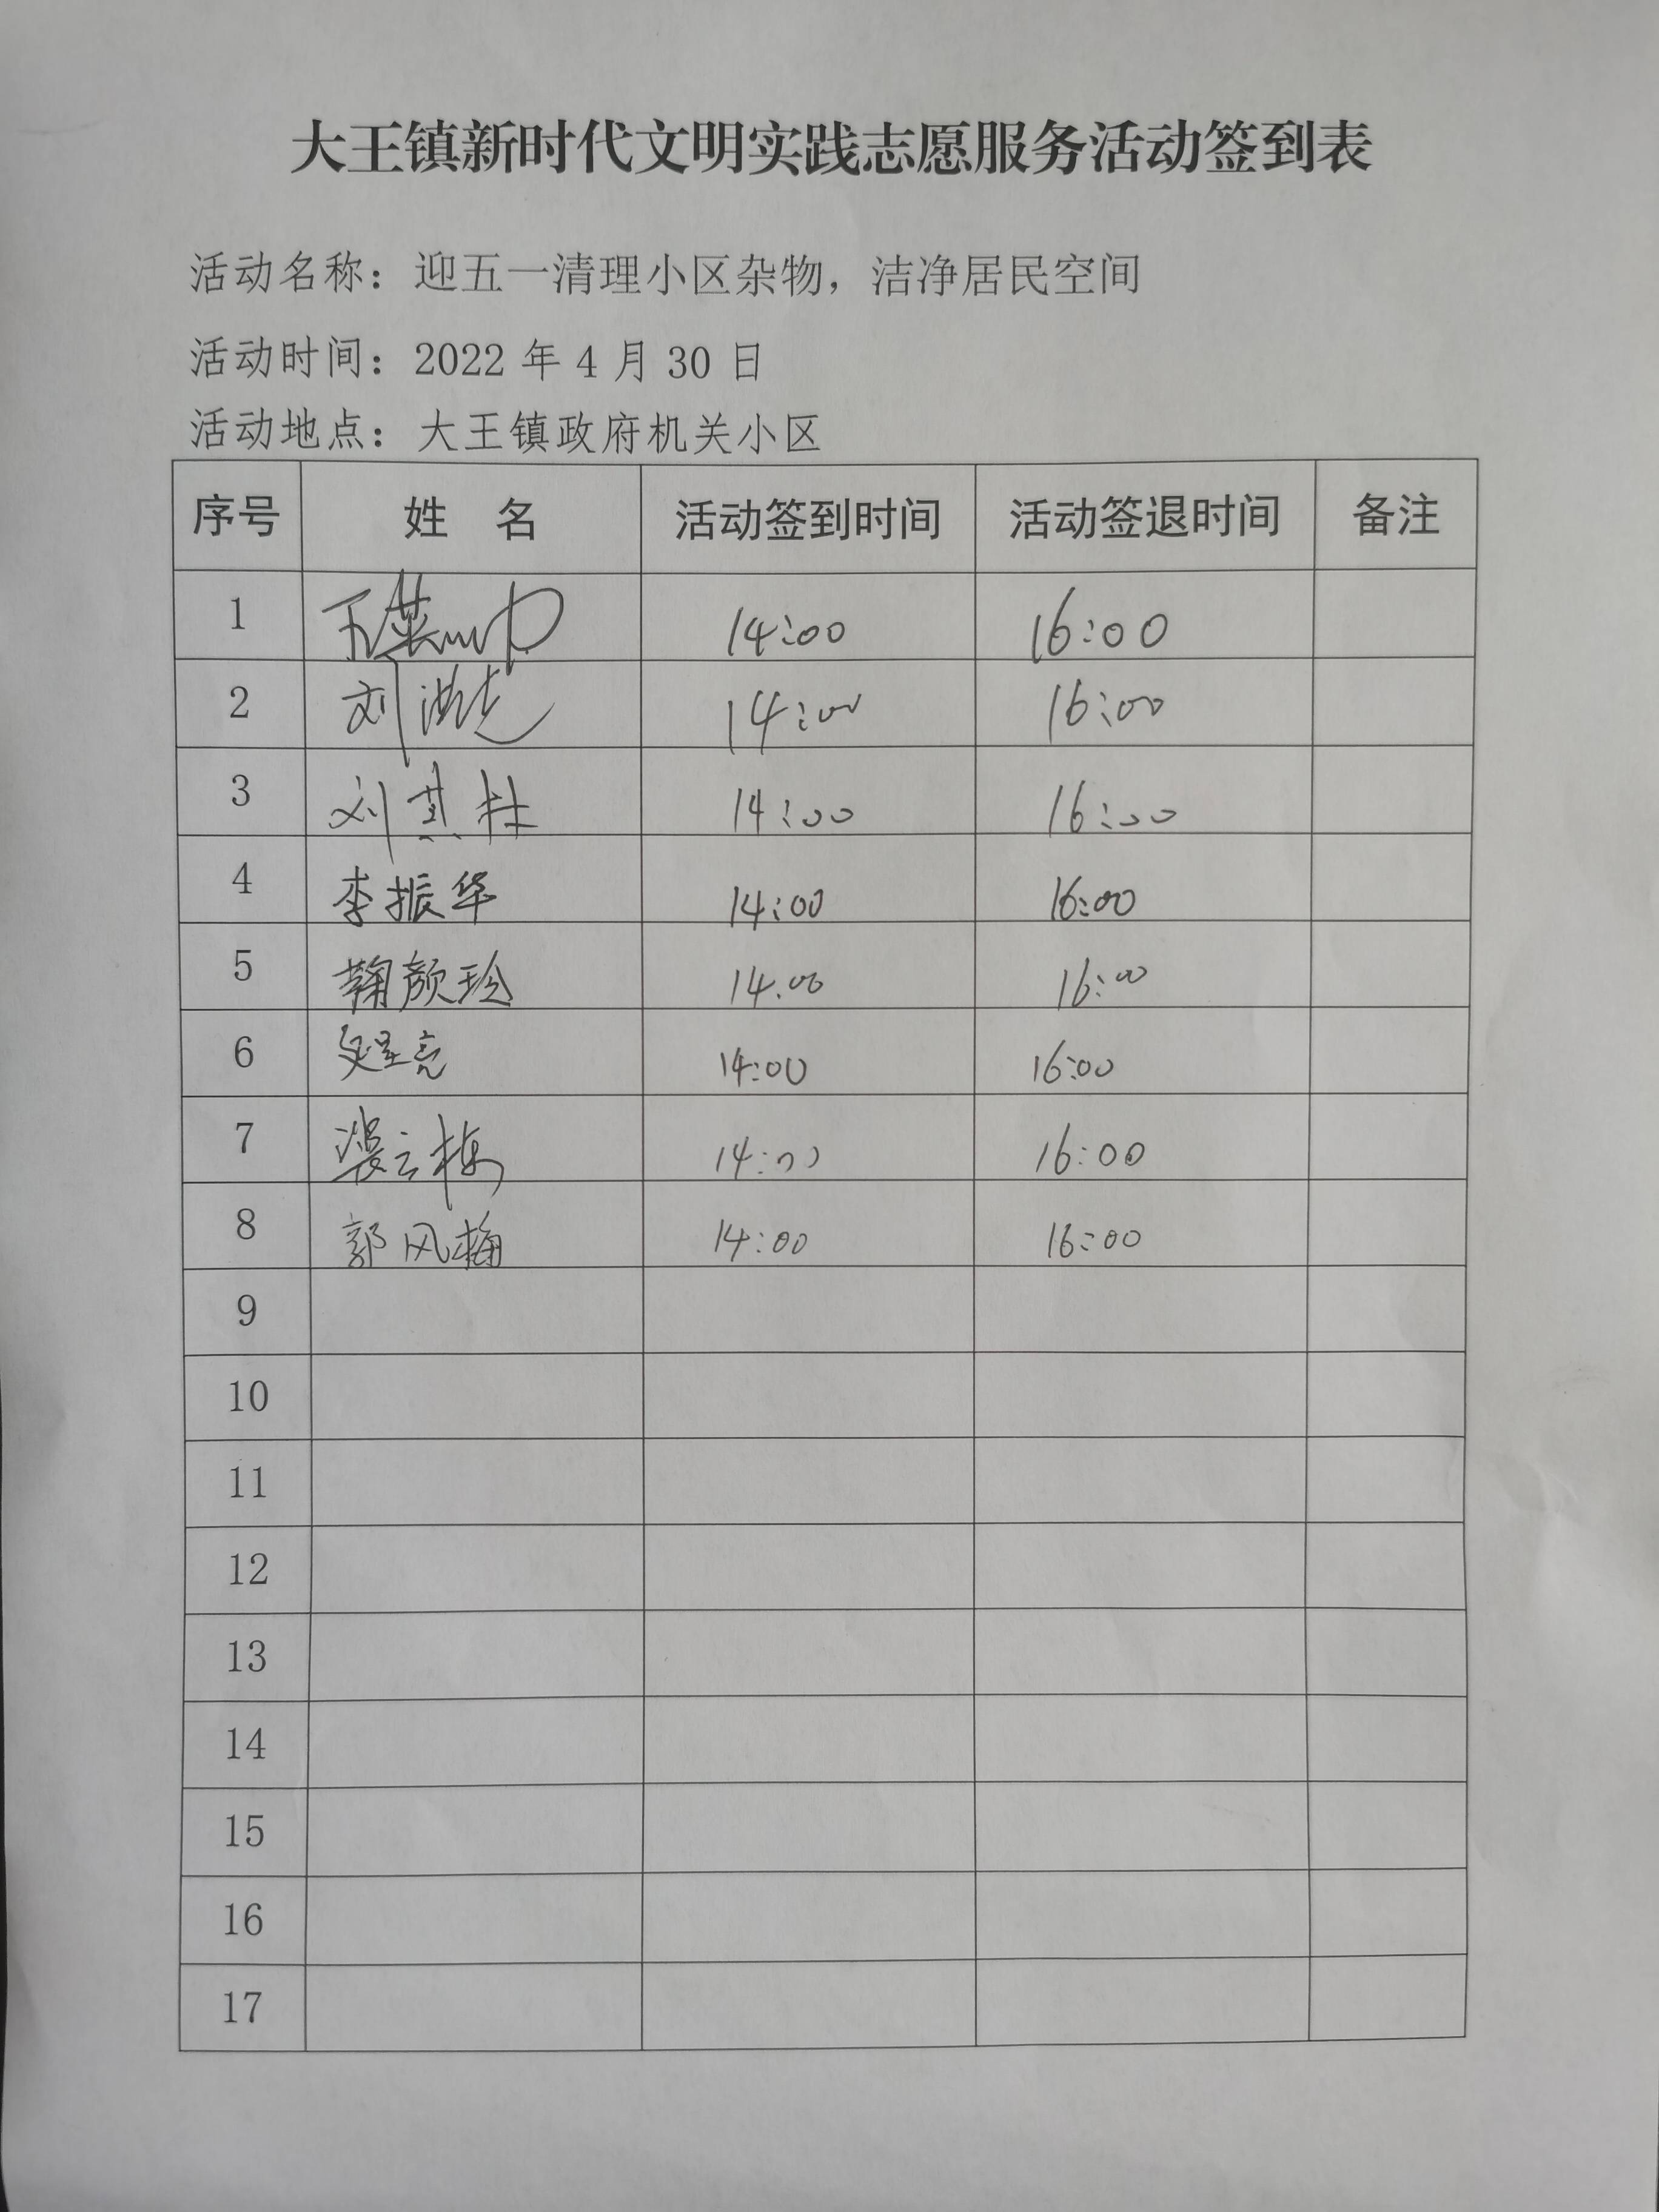 大王镇新时代文明实践志愿服务活动签到表
活动名称：迎五一清理小区杂物，洁净居民空间
活动时间：2022 年 4 月 30 日
活动地点：大王镇政府机关小区
序号 姓 名 活动签到时间 活动签退时间 备注
1 14:00 16:00
2 刘 14:00 16:00
3 刘其杜 14:00 16:00
4 李振华 14:00 16:00
5 鞠颜珍 14:00 16:00
6 14:00 16:00
7 裴云栋 14:00 16:00
8 郭风梅 14:00 16:00
9
10
11
12
13
14
15
16
17